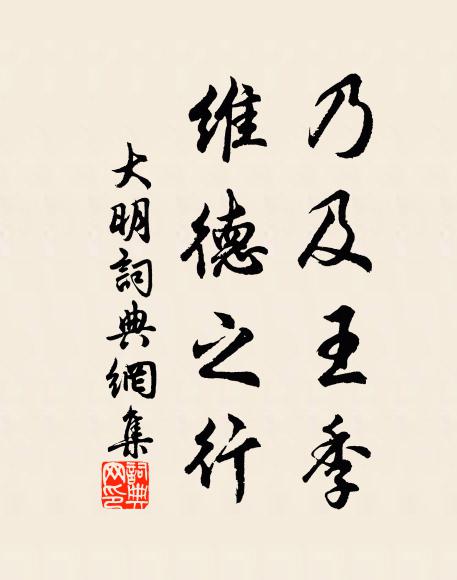 乃及王季
維德之行
大明詞典網集
詞典
网印